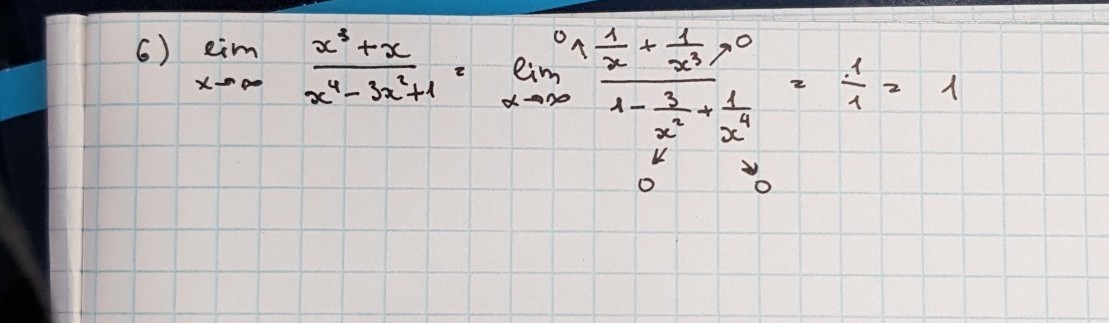 6) lim x→∞ (x³ + x)/(x⁴ - 3x² + 1) = lim x→∞ (1/x + 1/x³)/(1 - 3/x² + 1/x⁴) = 1/1 = 1
0 0
0 0